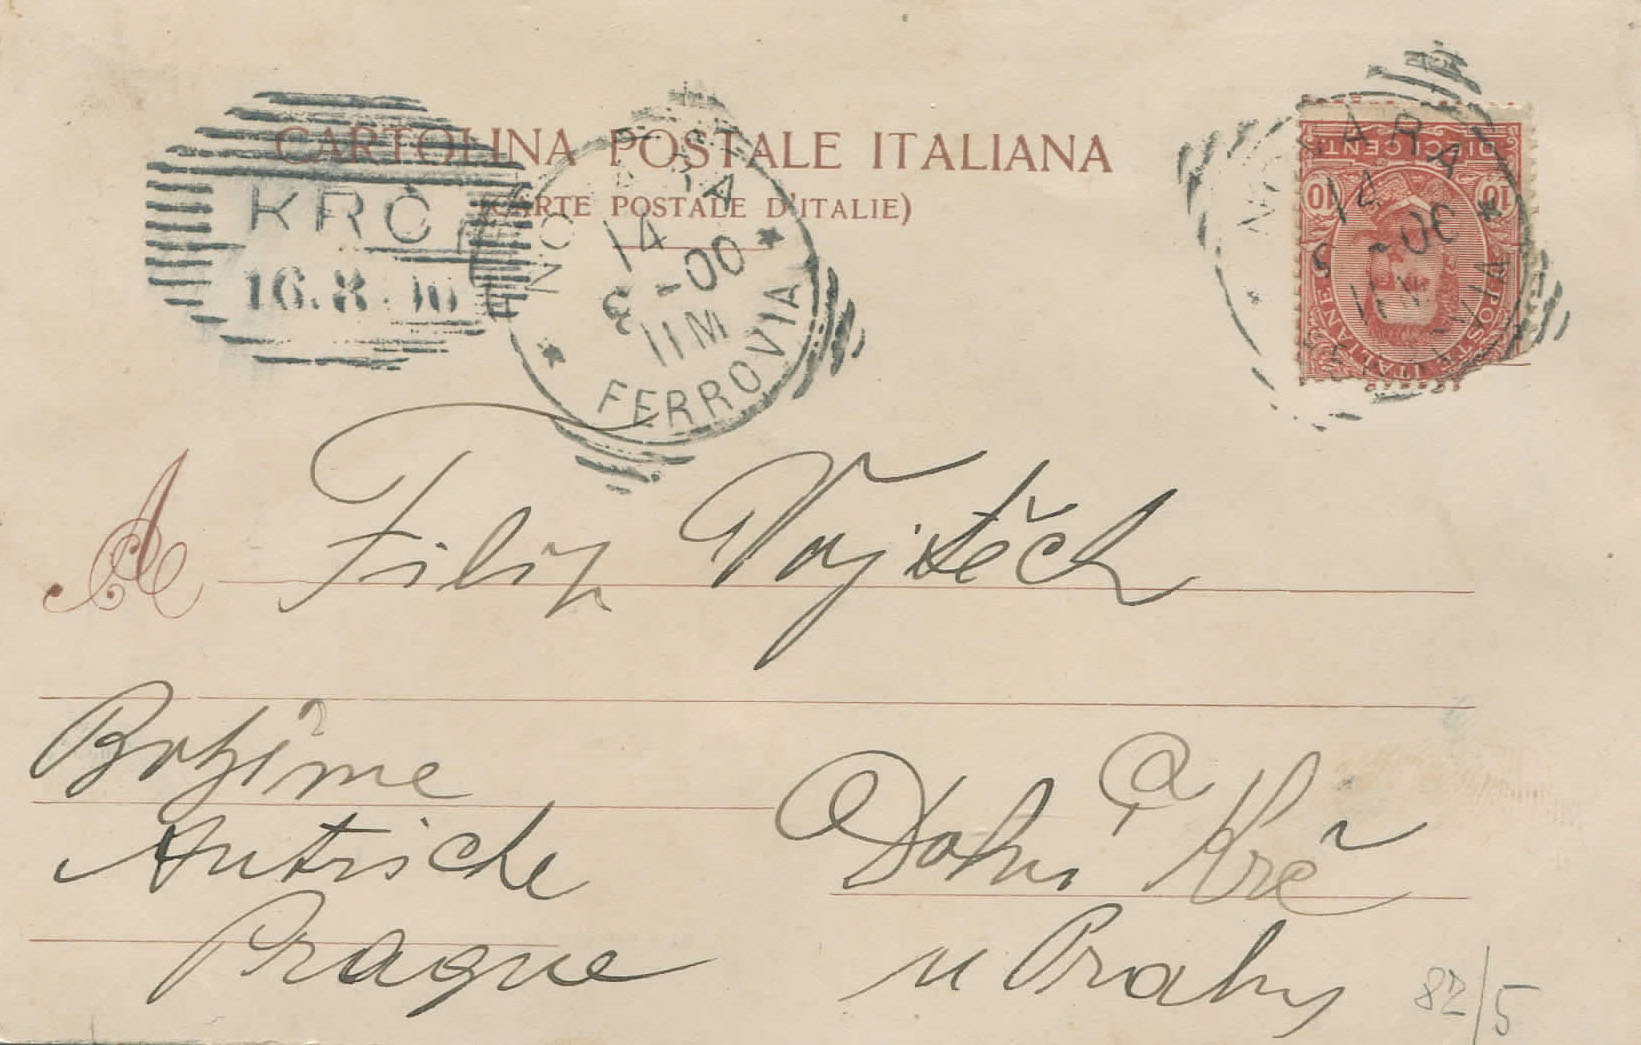 CARTOLINA POSTALE ITALIANA
(CARTE POSTALE D'ITALIE)
KRČ
16.8
NOVARA
14
8 - 00
11 M
* FERROVIA *
NOVARA
14
8 - 00
11 M
DIECI CENT
10 10
POSTE ITALIANE
A Filip Vojtěch
Bohême
Autriche
Prague
Dolní Krč
u Prahy
82/5